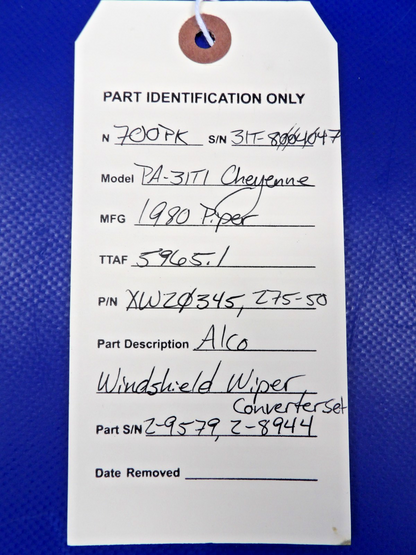 PART IDENTIFICATION ONLY
N 700PK S/N 31T-8004047
Model PA-31T1 Cheyenne
MFG 1980 Piper
TTAF 5965.1
P/N XW20345, 275-50
Part Description Alco
Windshield Wiper
Converter set
Part S/N 2-9579, 2-8944
Date Removed